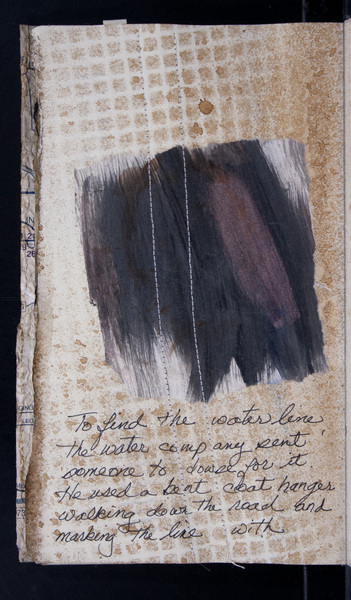 To find the water line
the water company sent
someone to dowse for it
He used a bent coat hanger
walking down the road and
marking the line with